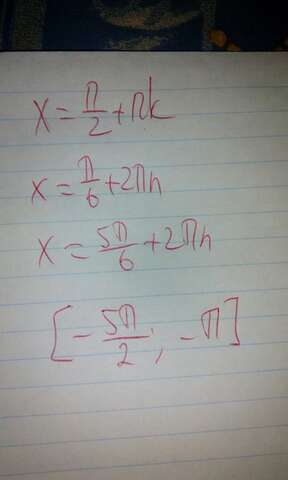 x = π/2 + πk
x = π/6 + 2πn
x = 5π/6 + 2πn
[-5π/2; -π]